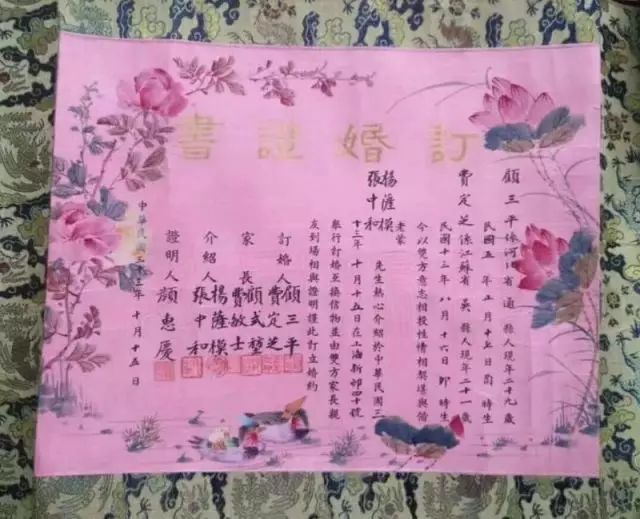 訂婚證書
顧三平係河北省通縣人現年二十九歲
民國五年正月十七日酉時生
費定芝係江蘇省吳縣人現年二十一歲
民國十三年八月十六日卯時生
今以雙方意志相投性情相契謀與偕
老蒙
楊蓬模
張中和
先生熱心介紹於中華民國三
十三年十月十五日在上海新邨四十號
舉行訂婚互換信物並由雙方家長親
友到場相與證明謹此訂立婚約
訂婚人顧三平
費定芝
家長顧式堃
費敏士
介紹人楊蓬模
張中和
證明人顏惠慶
中華民國三十三年十月十五日